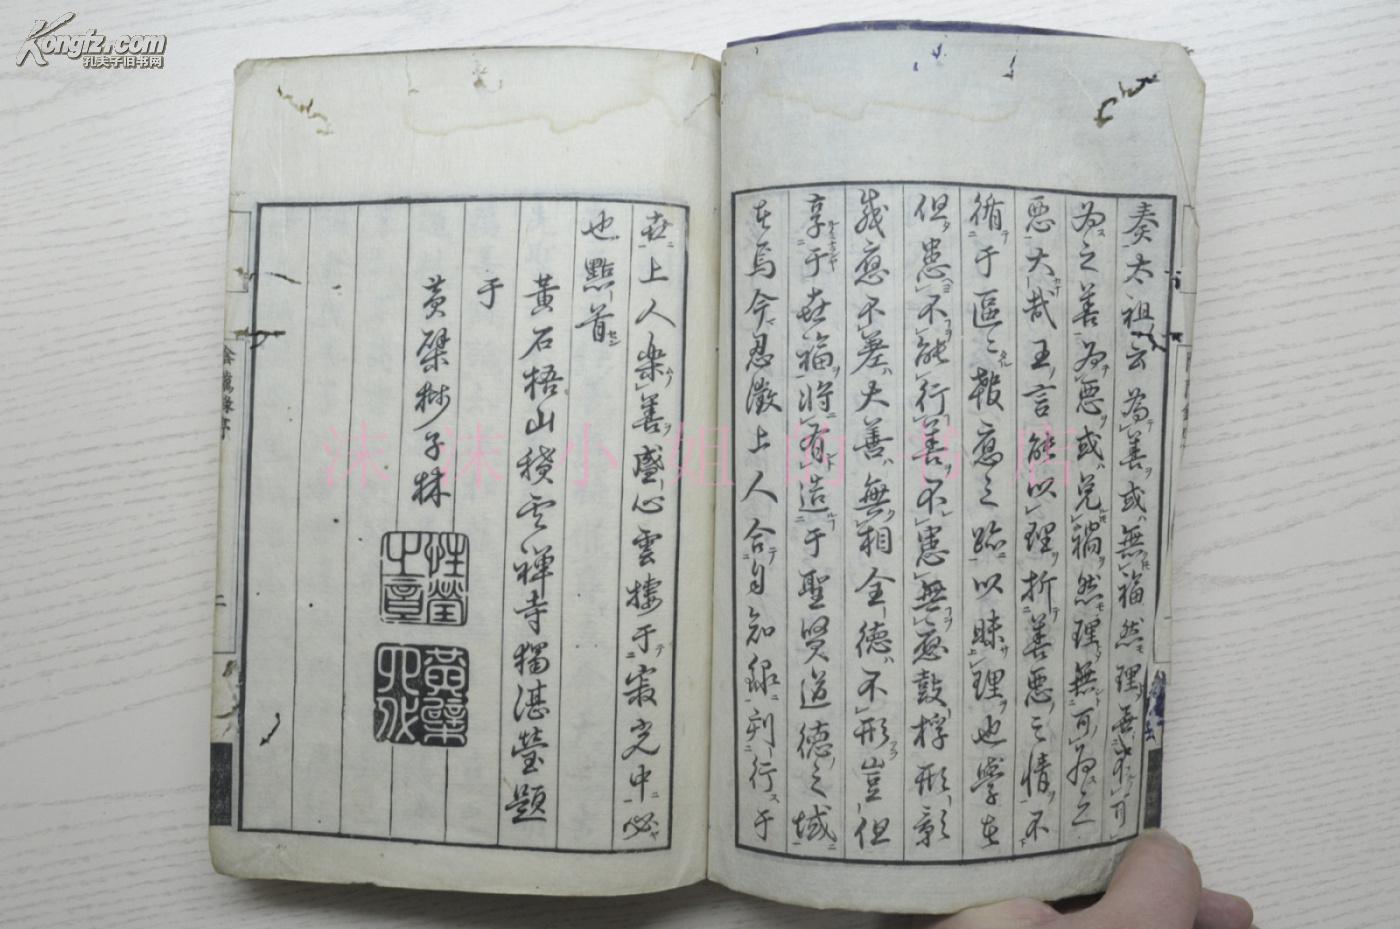 奏太祖云為善或無福然理無不可
為之善為惡或免禍然理無可為之
惡大哉王言能以理折善惡之情不
循于區〻報應之跡以昧理也學者
但患不能行善不患無應鼓桴形影
感應不差大善無相全德不形豈但
享于世福將有造于聖賢道德之域
者焉今忍澂上人合自知録刋行于
世上人樂善盛心雲棲于寂光中必
也點首
黃石梧山積雲禪寺獨湛瑩題
于
黃檗獅子林
性瑩之章
黃檗
二
Kongfz.com
孔夫子旧书网
沫沫小姐的书店